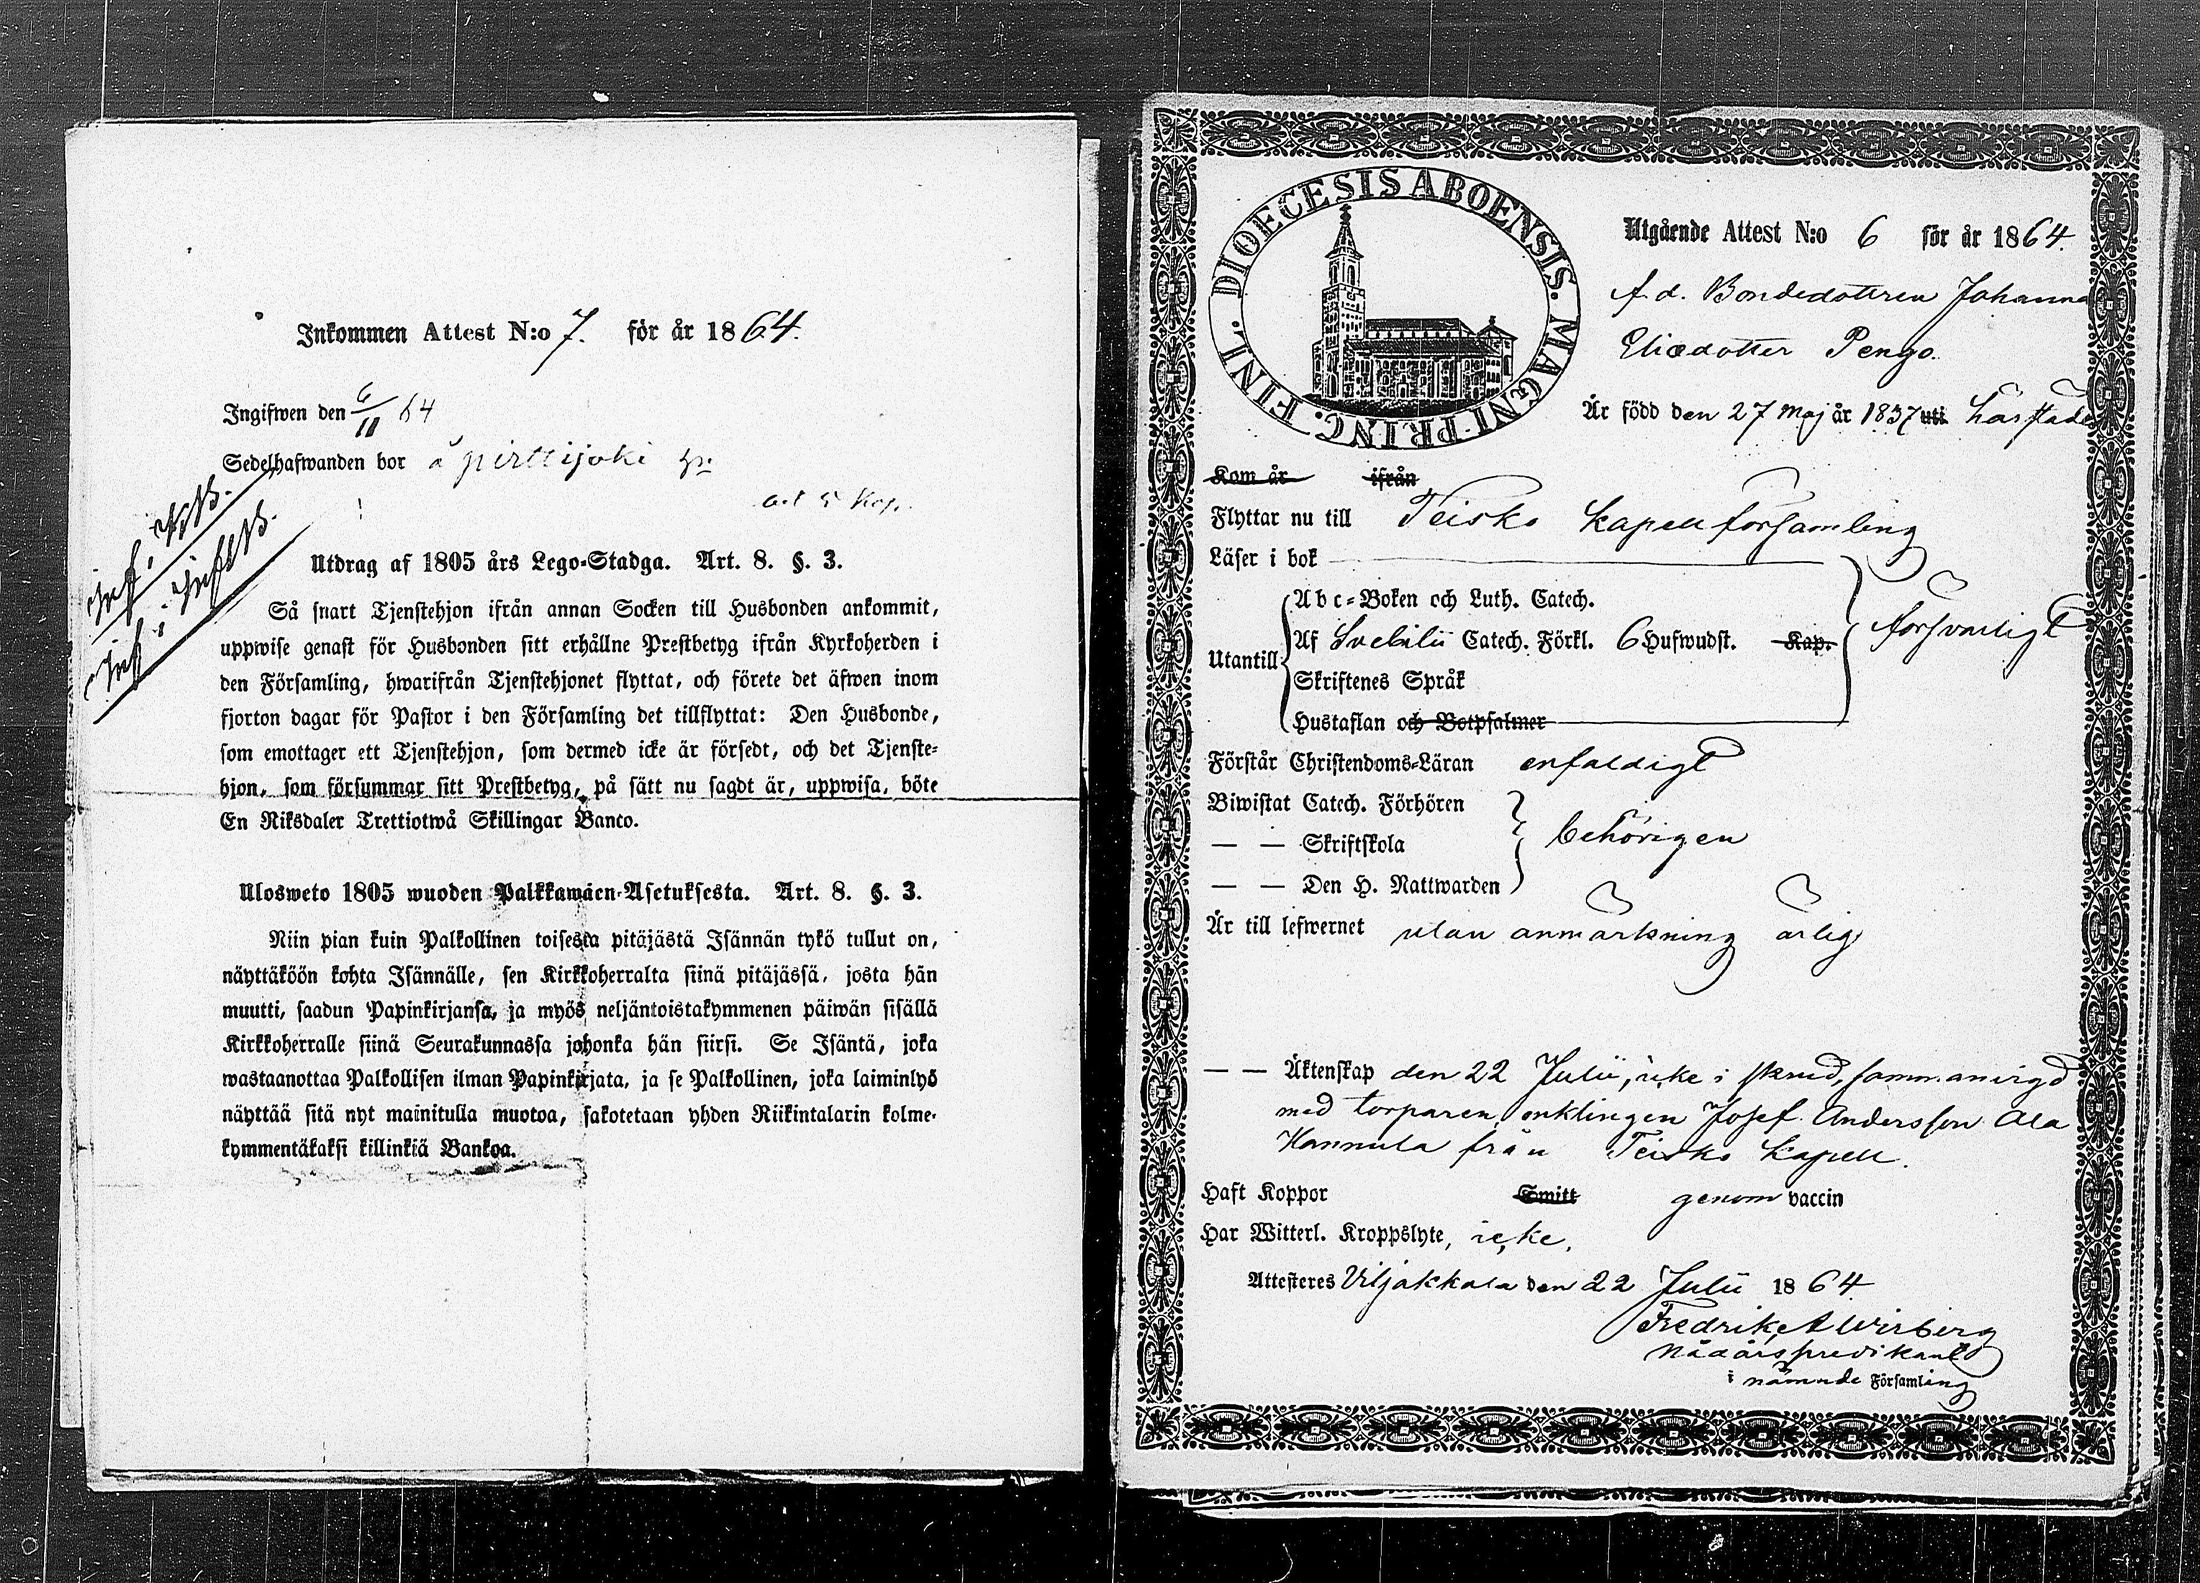 Inkommen Attest N:o 7. för år 1864.
Ingifwen den 6/11 64
Sedelhafwanden bor å pirttijoki
5 Kop.
Utdrag af 1805 års Lego-Stadga. Art. 8. §. 3.
Så snart Tjenstehjon ifrån annan Socken till Husbonden ankommit,
uppwise genast för Husbonden sitt erhållne Prestbetyg ifrån Kyrkoherden i
den Församling, hwarifrån Tjenstehjonet flyttat, och förete det äfwen inom
fjorton dagar för Pastor i den Församling det tillflyttat: Den Husbonde,
som emottager ett Tjenstehjon, som dermed icke är försedt, och det Tjenste-
hjon, som försummar sitt Prestbetyg, på sätt nu sagdt är, uppwisa, böte
En Riksdaler Trettiotwå Skillingar Banco.
Ulosweto 1805 wuoden Palkkawäen-Asetuksesta. Art. 8. §. 3.
Niin pian kuin Palkollinen toisesta pitäjästä Isännän tykö tullut on,
näyttäköön kohta Isännälle, sen Kirkkoherralta siinä pitäjässä, josta hän
muutti, saadun Papinkirjansa, ja myös neljäntoistakymmenen päiwän sisällä
Kirkkoherralle siinä Seurakunnassa johonka hän siirsi. Se Isäntä, joka
wastaanottaa Palkollisen ilman Papinkirjata, ja se Palkollinen, joka laiminlyö
näyttää sitä nyt mainitulla muotoa, sakotetaan yhden Riikintalarin kolme-
kymmentäkaksi killinkiä Bankoa.
DIOECESIS ABOENSIS. MAGNI PRINC. FINL.
Utgående Attest N:o 6 för år 1864.
f. d. Bondedottren Johanna
Eliædotter Pengo.
Är född den 27 Maj år 1837 uti härstädes
Kom år ifrån
Flyttar nu till Teisko Kapellförsamling
Läser i bok
Abc-Boken och Luth. Catech.
Utantill Af Svebilii Catech. Förkl. 6 Hufwudst. Kap. försvarligt
Skriftenes Språk
Hustaflan och Botpsalmer
Förstår Christendoms-Läran enfaldigt
Biwistat Catech. Förhören
— — Skriftskola behörigen
— — Den H. Nattwarden
Är till lefwernet utan anmärkning ärlig
— — Äktenskap den 22 Julii, icke i skrud, sammanvigd
med torparen, enklingen Josef Andersson Ala
Hannula från Teisko Kapell.
Haft Koppor Smitt genom vaccin
Har Witterl. Kroppslyte, icke.
Attesteres Viljakkala den 22 Julii 1864
Fredrik A Wirberg
Nådårspredikant
i nämnde Församling